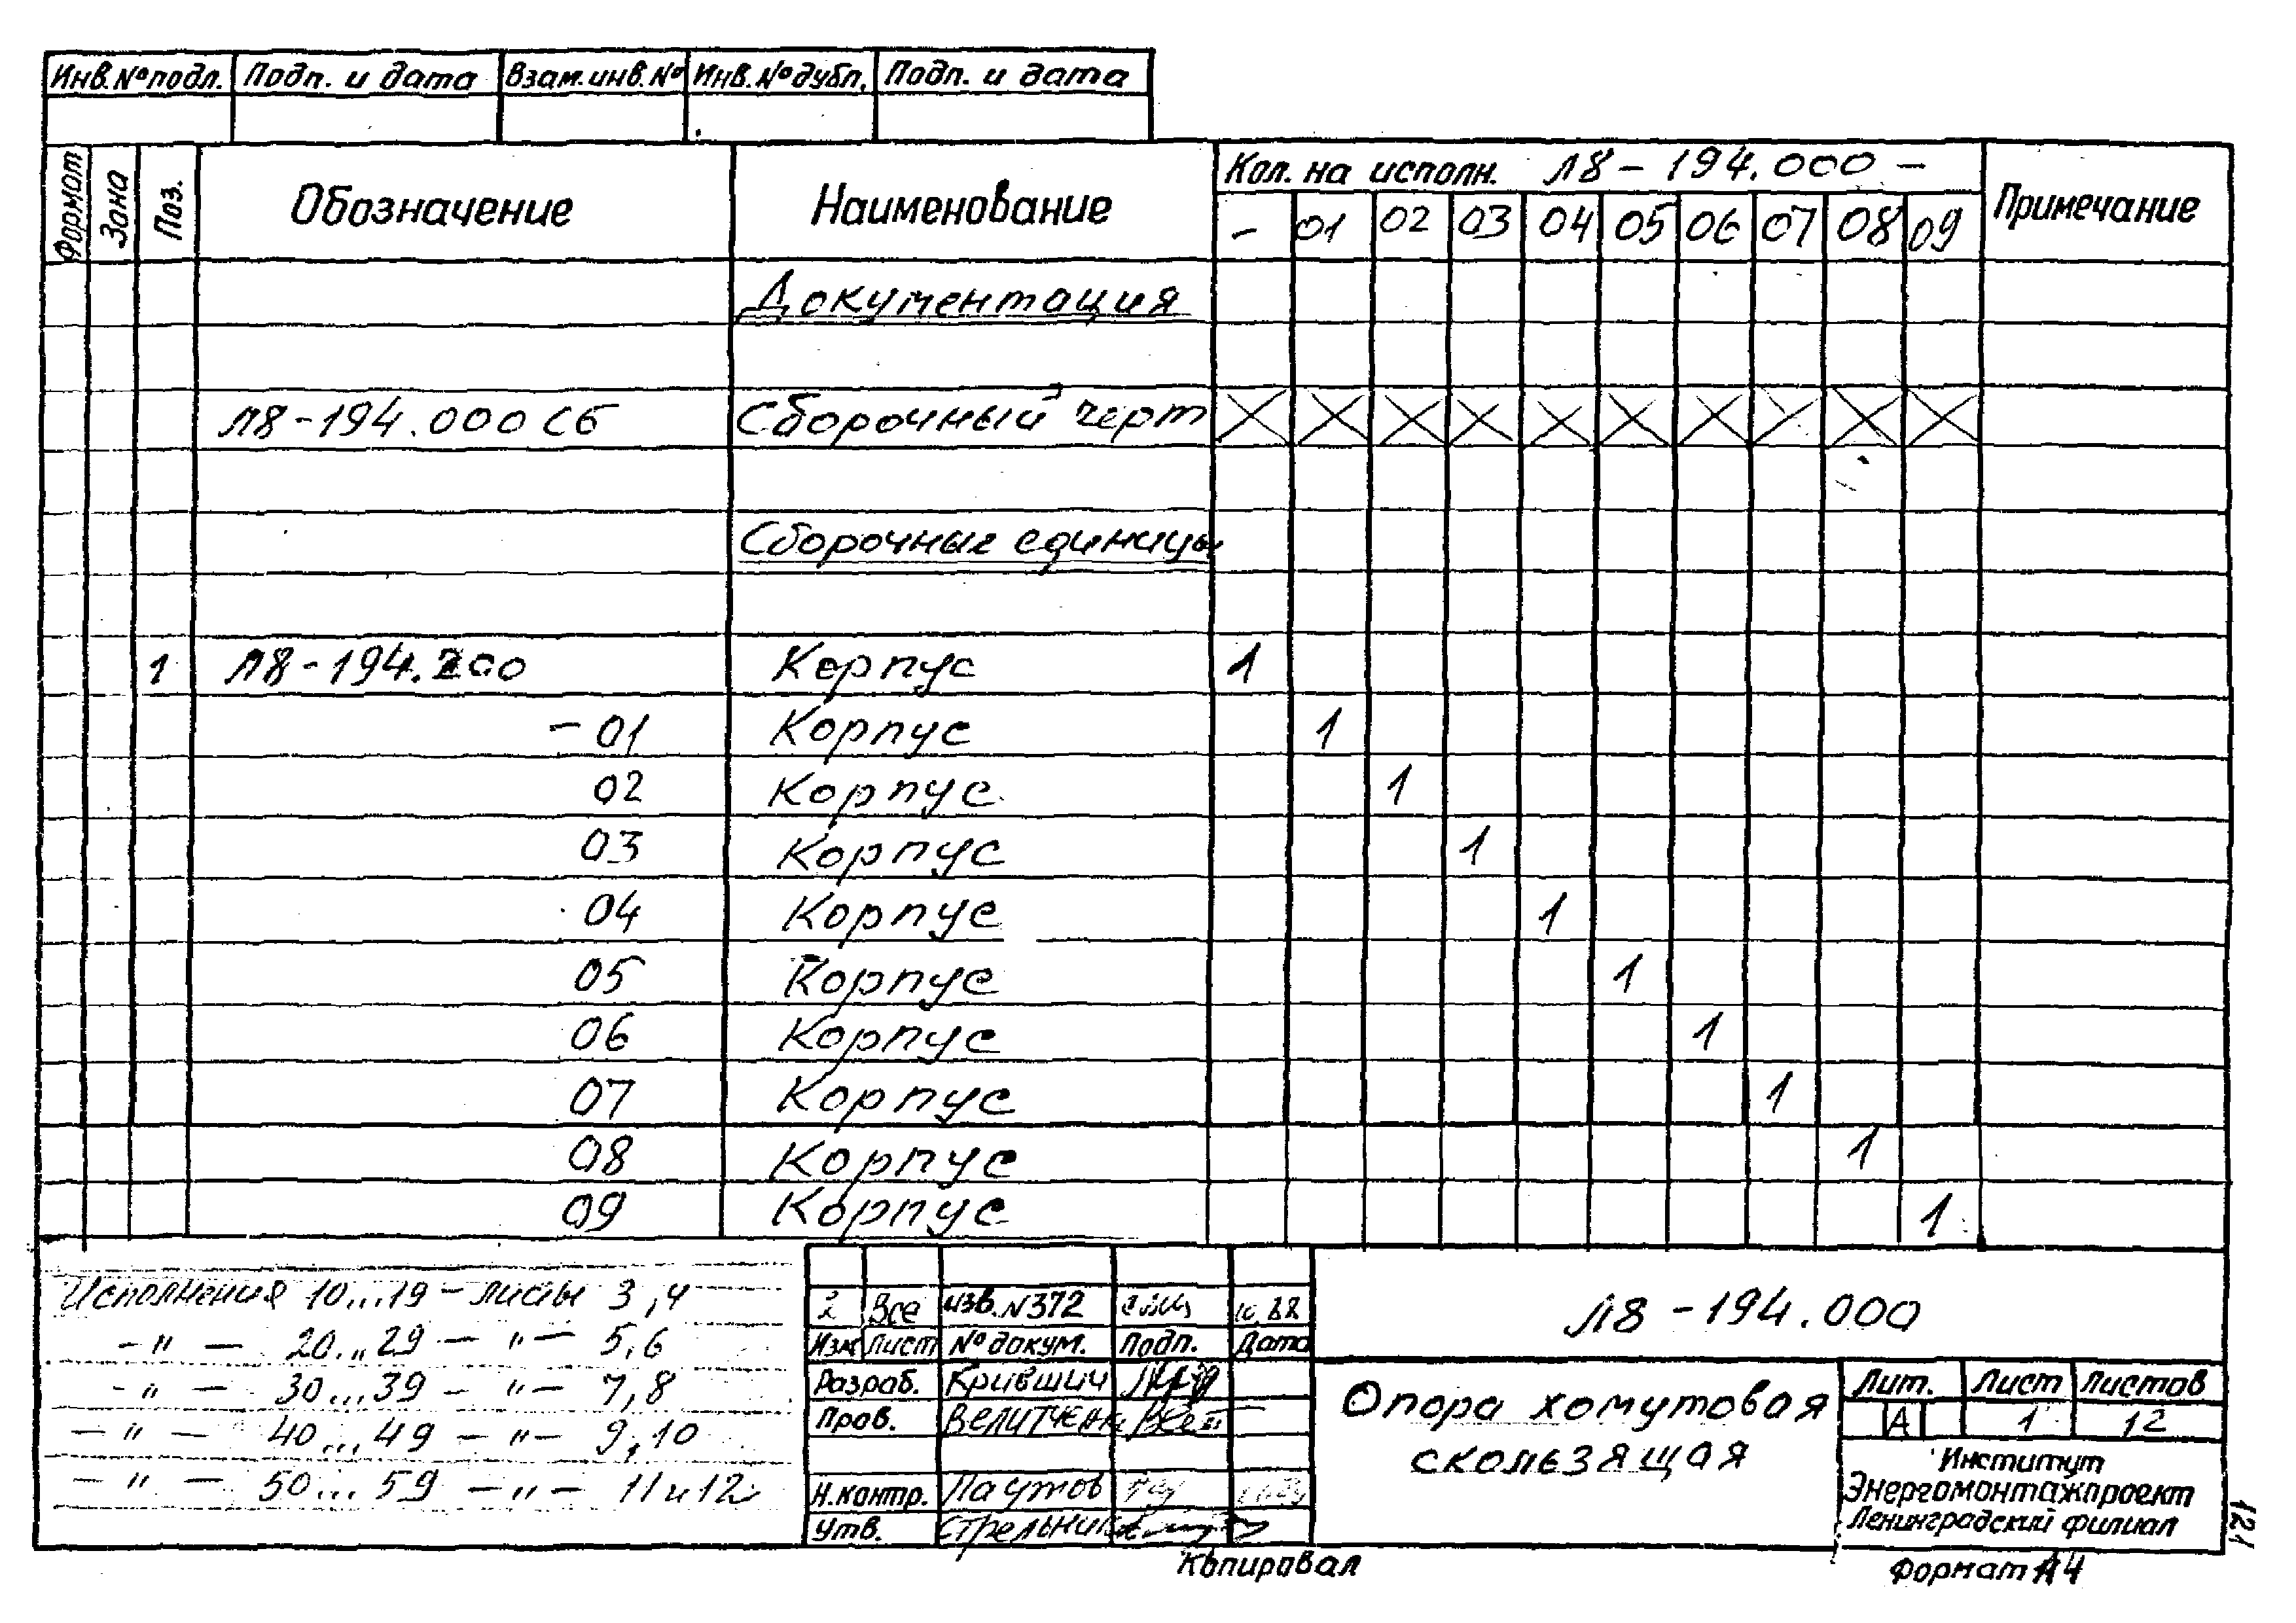 Инв.№подл. Подп. и дата Взам.инв.№ Инв.№дубл. Подп. и дата
Формат Зона Поз. Обозначение Наименование Кол. на исполн. Л8-194.000- Примечание
- 01 02 03 04 05 06 07 08 09
Документация
Л8-194.000 СБ Сборочный черт
Сборочные единицы
1 Л8-194.200 Корпус 1
-01 Корпус 1
02 Корпус 1
03 Корпус 1
04 Корпус 1
05 Корпус 1
06 Корпус 1
07 Корпус 1
08 Корпус 1
09 Корпус 1
Исполнения 10...19 - листы 3,4
-"- 20...29 -"- 5,6
-"- 30...39 -"- 7,8
-"- 40...49 -"- 9,10
-"- 50...59 -"- 11 и 12
2 Все изв.№372 10.88
Изм Лист № докум. Подп. Дата
Разраб. Кривших
Пров. Велитченк
Н.контр. Паутов
Утв. Стрельник
Л8-194.000
Опора хомутовая
скользящая
Лит. Лист Листов
А 1 12
Институт
Энергомонтажпроект
Ленинградский филиал
Копировал
Формат А4
121